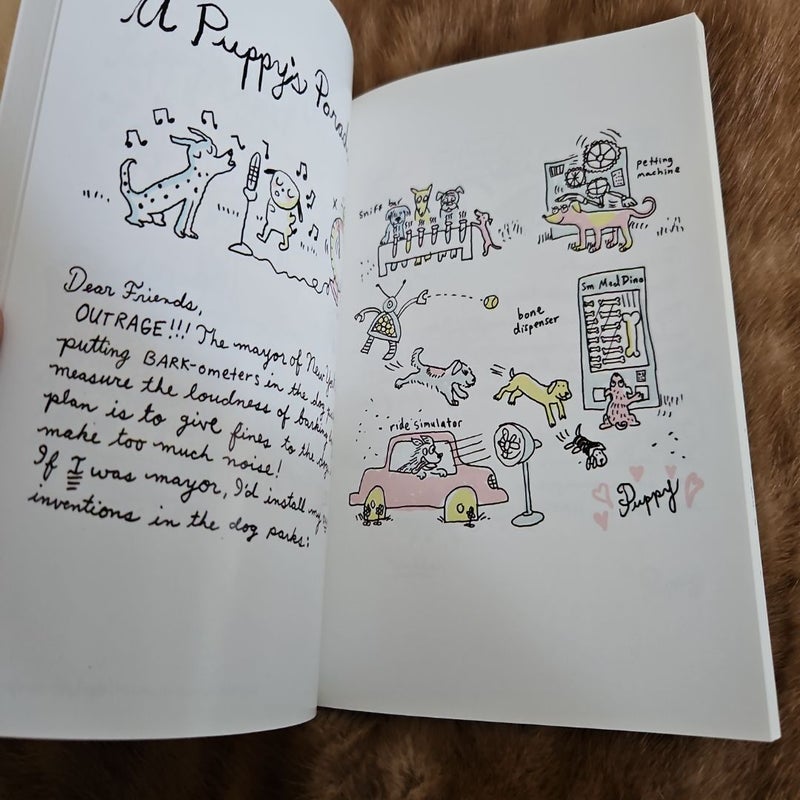 A Puppy's
Dear Friends,
OUTRAGE!!! The mayor of New
putting BARK-ometers in the dog
measure the loudness of barking
plan is to give fines to the
make too much noise!
If I was mayor, I'd install my
inventions in the dog parks:
Sniff bar
petting
machine
Sm Med Dino
bone
dispenser
ride simulator
Puppy